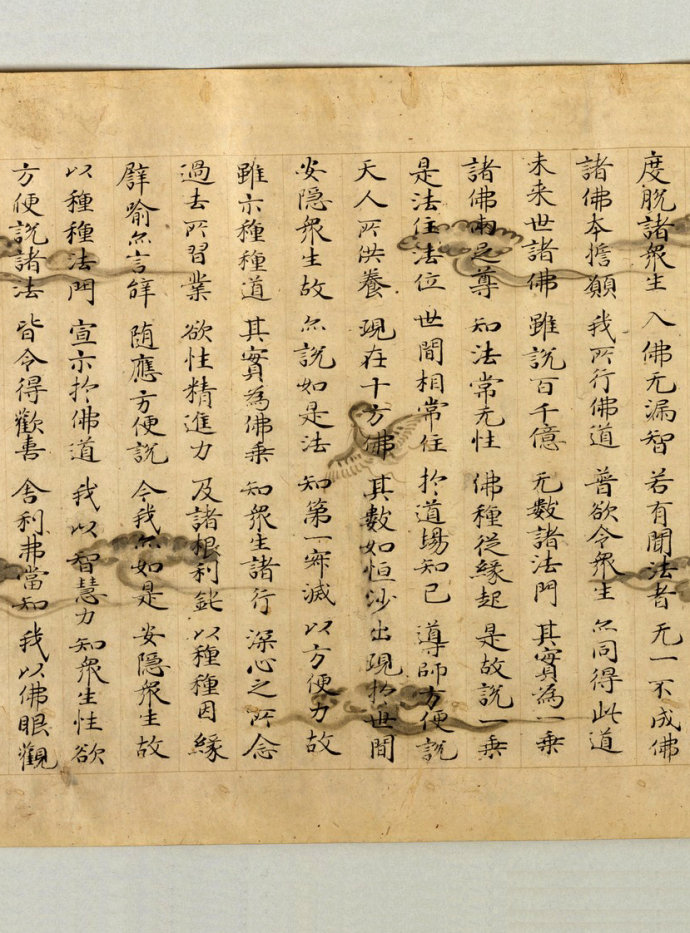 度脱諸衆生 入佛无漏智 若有聞法者 无一不成佛
諸佛本擔願 我所行佛道 普欲令衆生 尓同得此道
未来世諸佛 雖説百千億 无數諸法門 其實為一乗
諸佛兩足尊 知法常无性 佛種從縁起 是故説一乗
是法住法位 世間相常住 於道場知已 導師方便説
天人所洪養 現在十方佛 其數如恒沙 出現於世間
安隠衆生故 尓説如是法 知第一寂滅 以方便力故
雖示種種道 其實為佛乗 知衆生諸行 深心之所念
過去所習業 欲性精進力 及諸根利鈍 以種種因縁
譬喻尓言辝 随應方便説 今我尓如是 安隠衆生故
以種種法門 宣示於佛道 我以智慧力 知衆生性欲
方便説諸法 皆令得歡喜 舎利弗當知 我以佛眼觀